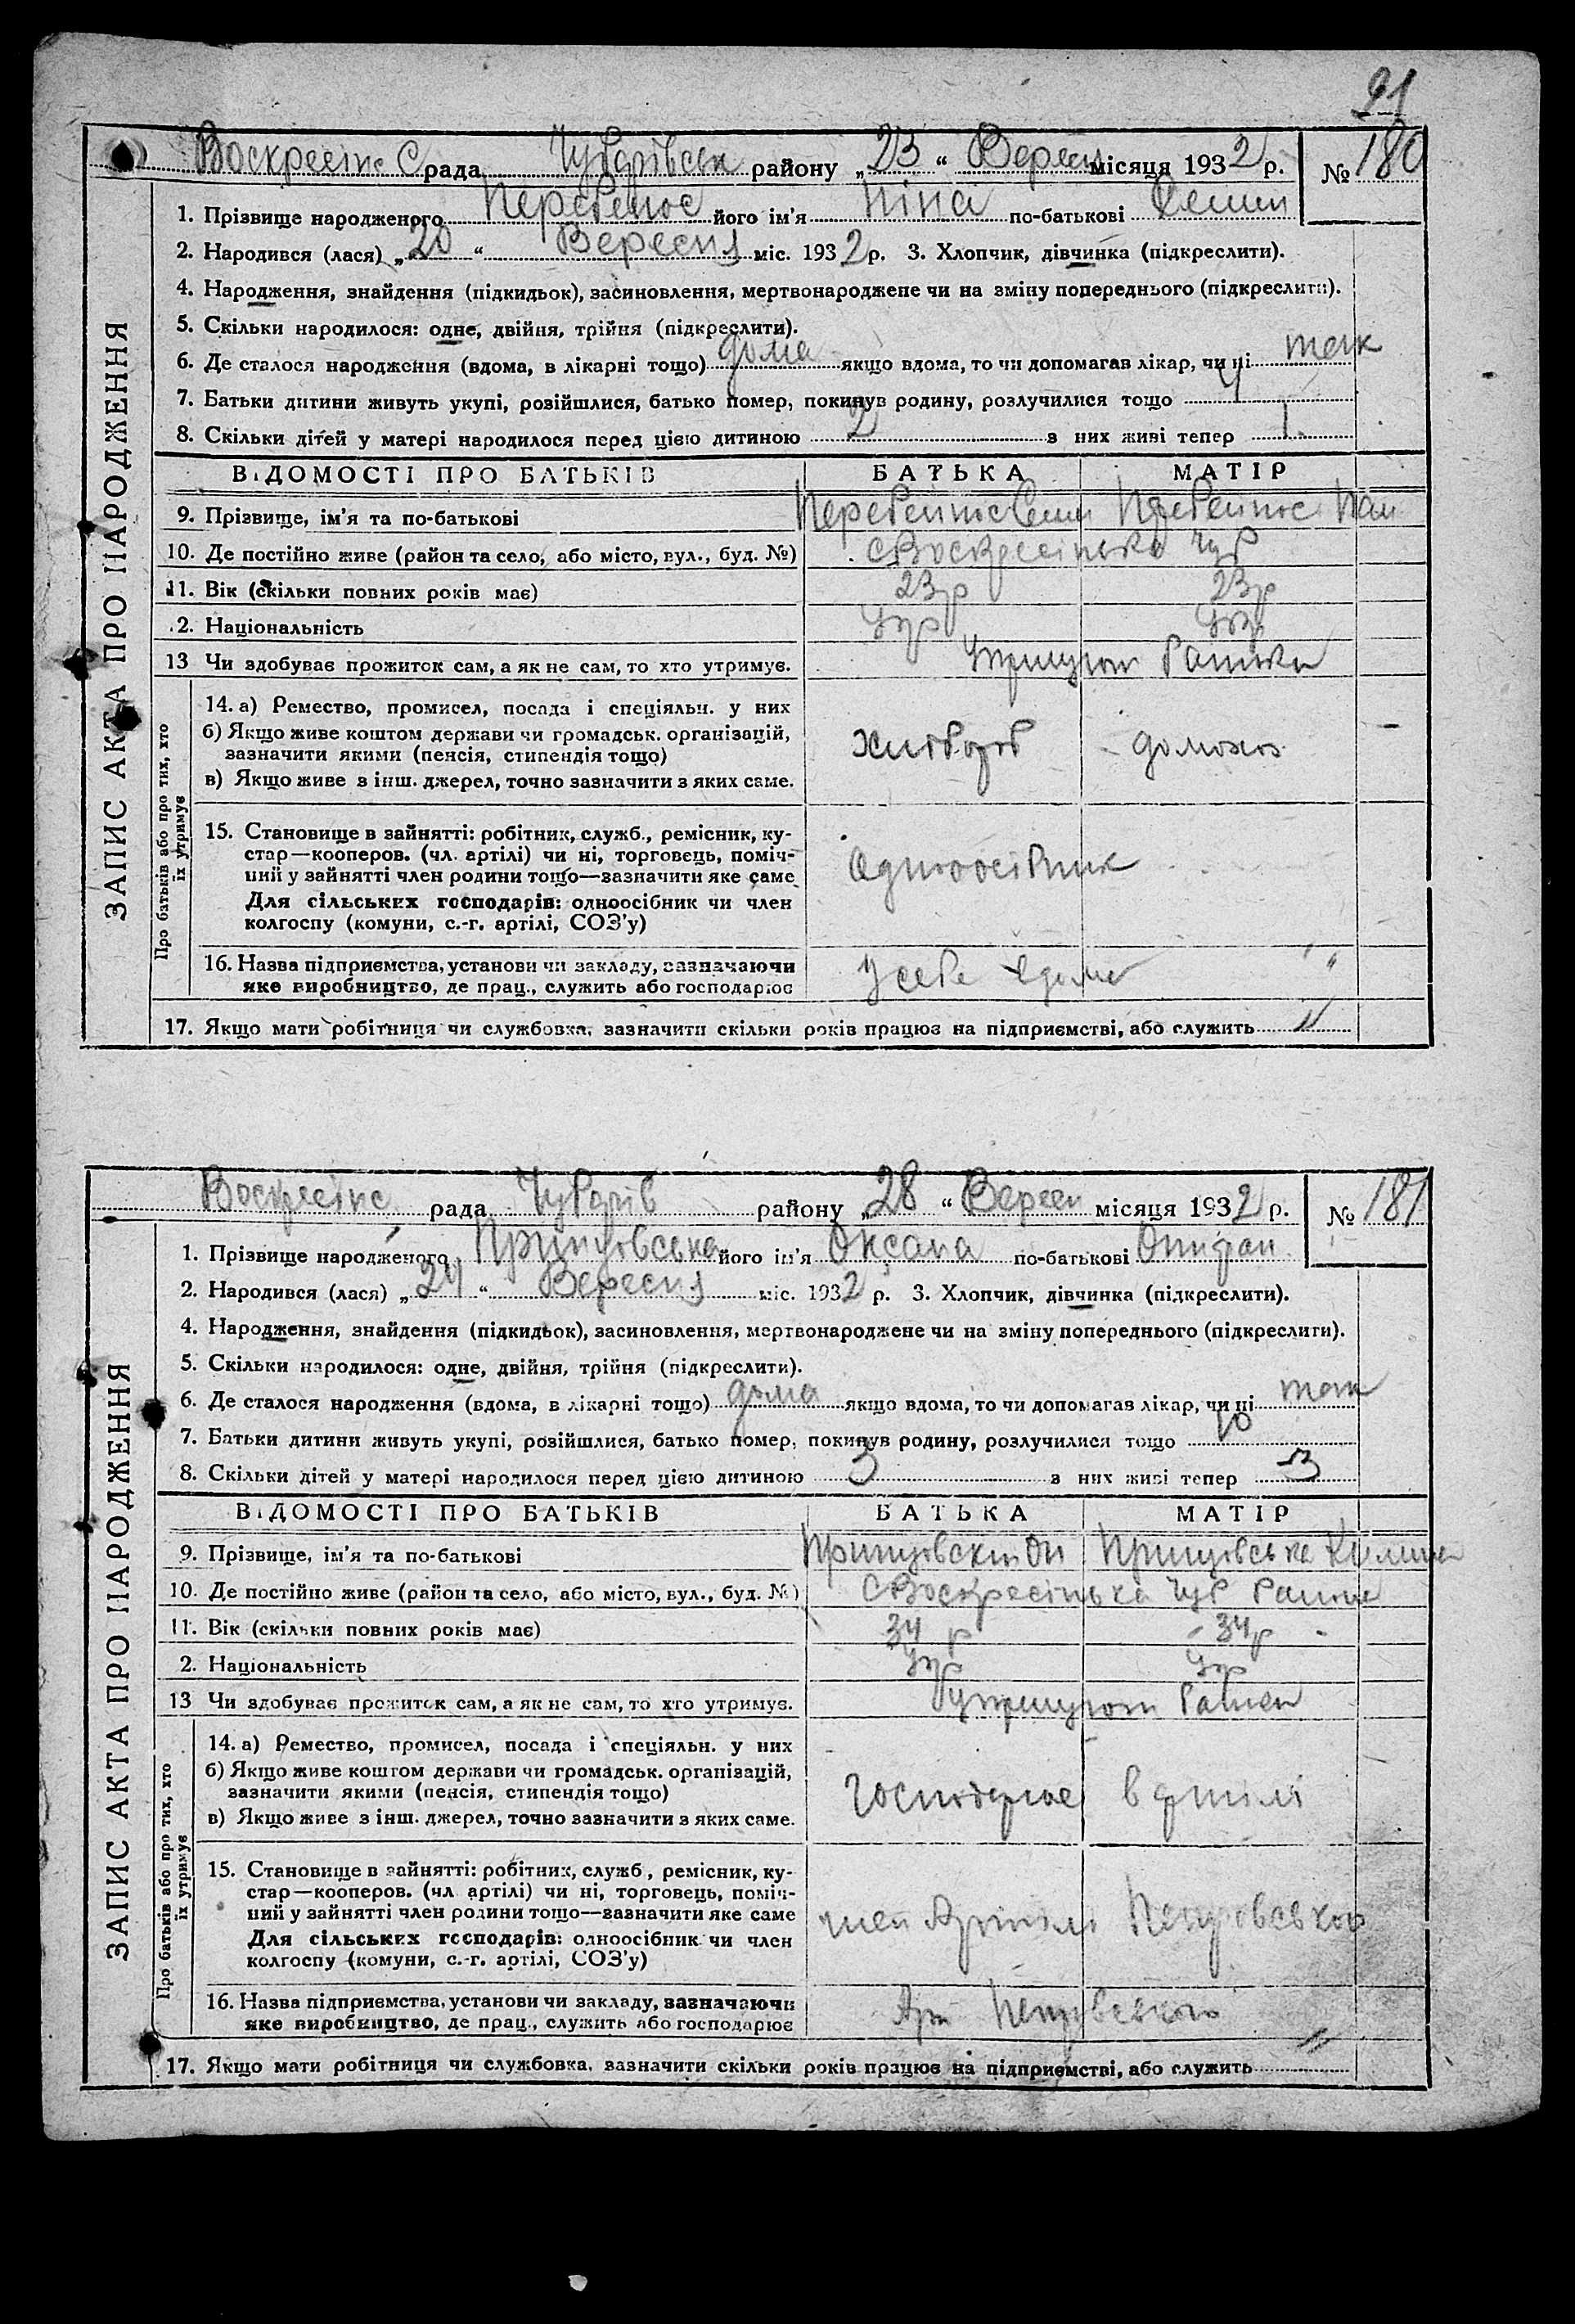 91
Воскресінс С рада Чубарівськ району „23“ Вересн місяця 1932 р. № 180
1. Прізвище народженого Перебенос його ім'я Ніна по-батькові
2. Народився (лася) „20“ Вересня міс. 1932 р. 3. Хлопчик, дівчинка (підкреслити).
4. Народження, знайдення (підкидьок), засиновлення, мертвонароджене чи на зміну попереднього (підкреслити).
5. Скільки народилося: одне, двійня, трійня (підкреслити).
6. Де сталося народження (вдома, в лікарні тощо) дома якщо вдома, то чи допомагав лікар, чи ні так
7. Батьки дитини живуть укупі, розійшлися, батько помер, покинув родину, розлучилися тощо
8. Скільки дітей у матері народилося перед цією дитиною 2 з них живі тепер 1
ВІДОМОСТІ ПРО БАТЬКІВ БАТЬКА МАТІР
9. Прізвище, ім'я та по-батькові
10. Де постійно живе (район та село, або місто, вул., буд. №) С Воскресінька Чуб
11. Вік (скільки повних років має) 23 р 23 р
2. Національність Укр Укр
13 Чи здобуває прожиток сам, а як не сам, то хто утримує.
14. а) Ремество, промисел, посада і спеціяльн. у них
б) Якщо живе коштом держави чи громадськ. організацій,
зазначити якими (пенсія, стипендія тощо) хлібороб домохоз
в) Якщо живе з інш. джерел, точно зазначити з яких саме.
15. Становище в зайнятті: робітник, служб., ремісник, ку-
стар—кооперов. (чл. артілі) чи ні, торговець, поміч-
ний у зайнятті член родини тощо—зазначити яке саме Одноосібник
Для сільських господарів: одноосібник чи член
колгоспу (комуни, с.-г. артілі, СОЗ'у)
16. Назва підприємства, установи чи закладу, зазначаючи У себе вдома "
яке виробництво, де прац., служить або господарює
17. Якщо мати робітниця чи службовка, зазначити скільки років працює на підприємстві, або служить "
ЗАПИС АКТА ПРО НАРОДЖЕННЯ
Про батьків або про тих, хто
їх утримує
Воскресінс рада Чубарів району „28“ Вересн місяця 1932 р. № 181
1. Прізвище народженого його ім'я Оксана по-батькові
2. Народився (лася) „24“ Вересня міс. 1932 р. 3. Хлопчик, дівчинка (підкреслити).
4. Народження, знайдення (підкидьок), засиновлення, мертвонароджене чи на зміну попереднього (підкреслити).
5. Скільки народилося: одне, двійня, трійня (підкреслити).
6. Де сталося народження (вдома, в лікарні тощо) дома якщо вдома, то чи допомагав лікар, чи ні так
7. Батьки дитини живуть укупі, розійшлися, батько помер, покинув родину, розлучилися тощо
8. Скільки дітей у матері народилося перед цією дитиною 3 з них живі тепер 3
ВІДОМОСТІ ПРО БАТЬКІВ БАТЬКА МАТІР
9. Прізвище, ім'я та по-батькові
10. Де постійно живе (район та село, або місто, вул., буд. №) С Воскресінька Чуб
11. Вік (скільки повних років має) 34 р 34 р
2. Національність Укр Укр
13 Чи здобуває прожиток сам, а як не сам, то хто утримує.
14. а) Ремество, промисел, посада і спеціяльн. у них
б) Якщо живе коштом держави чи громадськ. організацій,
зазначити якими (пенсія, стипендія тощо) Господарює в артілі
в) Якщо живе з інш. джерел, точно зазначити з яких саме.
15. Становище в зайнятті: робітник, служб., ремісник, ку-
стар—кооперов. (чл. артілі) чи ні, торговець, поміч-
ний у зайнятті член родини тощо—зазначити яке саме член Артілі Петровського
Для сільських господарів: одноосібник чи член
колгоспу (комуни, с.-г. артілі, СОЗ'у)
16. Назва підприємства, установи чи закладу, зазначаючи Арт Петровського
яке виробництво, де прац., служить або господарює
17. Якщо мати робітниця чи службовка, зазначити скільки років працює на підприємстві, або служить "
ЗАПИС АКТА ПРО НАРОДЖЕННЯ
Про батьків або про тих, хто
їх утримує